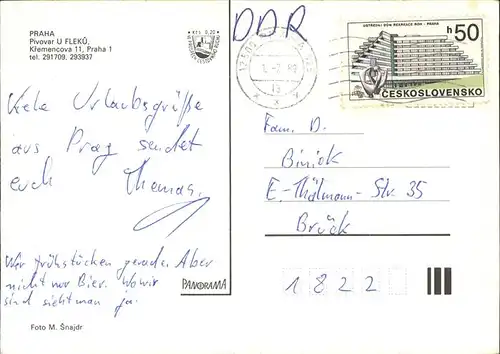 PRAHA
Pivovar U FLEKŮ,
Křemencova 11, Praha 1
tel. 291709, 293937
Kčs 0,20
DDR
ÚSTŘEDNÍ DŮM REKREACE ROH - PRAHA
h 50
ČESKOSLOVENSKO
Viele Urlaubsgrüße
aus Prag sendet
euch Thomas.
Wir frühstücken gerade. Aber
nicht nur Bier. Wo wir
sind sieht man ja.
Fam. D.
Biniok
E.-Thälmann-Str. 35
Brück
1822
PANORAMA
Foto M. Šnajdr